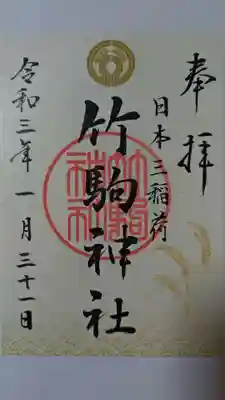 奉拝
日本三稲荷
竹駒神社
令和三年一月三十一日
竹駒神社